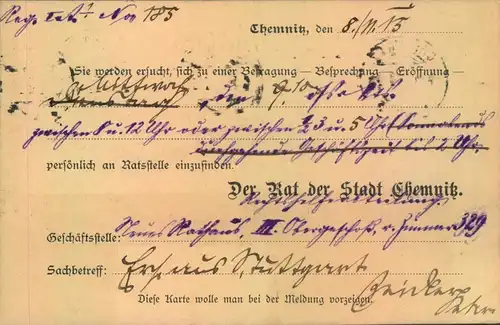 Reg. Nr 185
Chemnitz, den 8./11. 15
Sie werden ersucht, sich zu einer Befragung — Besprechung — Eröffnung —
Mittwoch, den
zwischen 8 u. 12 Uhr oder zwischen ½ 3 u. 5 Uhr (Sonnabends
durchgehende Geschäftszeit bis 2 Uhr)
persönlich an Ratsstelle einzufinden.
Der Rat der Stadt Chemnitz.
Geschäftsstelle: Neues Rathaus, III. Obergeschoß, Zimmer 329
Sachbetreff: aus Stuttgart
Diese Karte wolle man bei der Meldung vorzeigen.